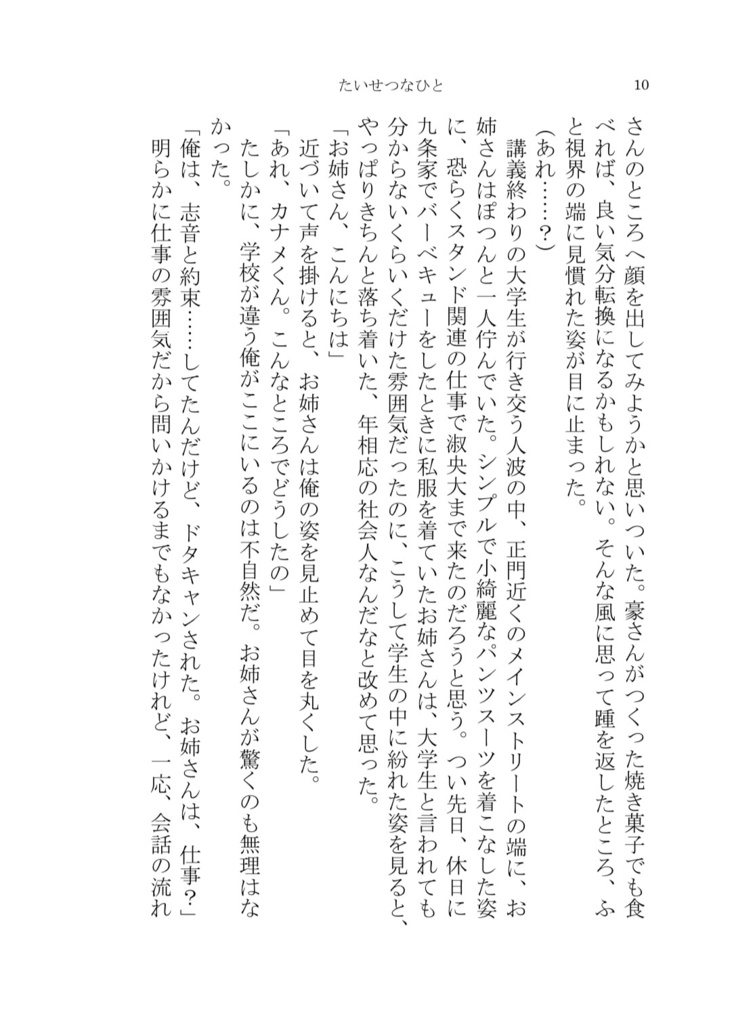 たいせつなひと
10
さんのところへ顔を出してみようかと思いついた。豪さんがつくった焼き菓子でも食
べれば、良い気分転換になるかもしれない。そんな風に思って踵を返したところ、ふ
と視界の端に見慣れた姿が目に止まった。
（あれ……？）
　講義終わりの大学生が行き交う人波の中、正門近くのメインストリートの端に、お
姉さんはぽつんと一人佇んでいた。シンプルで小綺麗なパンツスーツを着こなした姿
に、恐らくスタンド関連の仕事で淑央大まで来たのだろうと思う。つい先日、休日に
九条家でバーベキューをしたときに私服を着ていたお姉さんは、大学生と言われても
分からないくらいくだけた雰囲気だったのに、こうして学生の中に紛れた姿を見ると、
やっぱりきちんと落ち着いた、年相応の社会人なんだなと改めて思った。
「お姉さん、こんにちは」
　近づいて声を掛けると、お姉さんは俺の姿を見止めて目を丸くした。
「あれ、カナメくん。こんなところでどうしたの」
　たしかに、学校が違う俺がここにいるのは不自然だ。お姉さんが驚くのも無理はな
かった。
「俺は、志音と約束……してたんだけど、ドタキャンされた。お姉さんは、仕事？」
　明らかに仕事の雰囲気だから問いかけるまでもなかったけれど、一応、会話の流れ